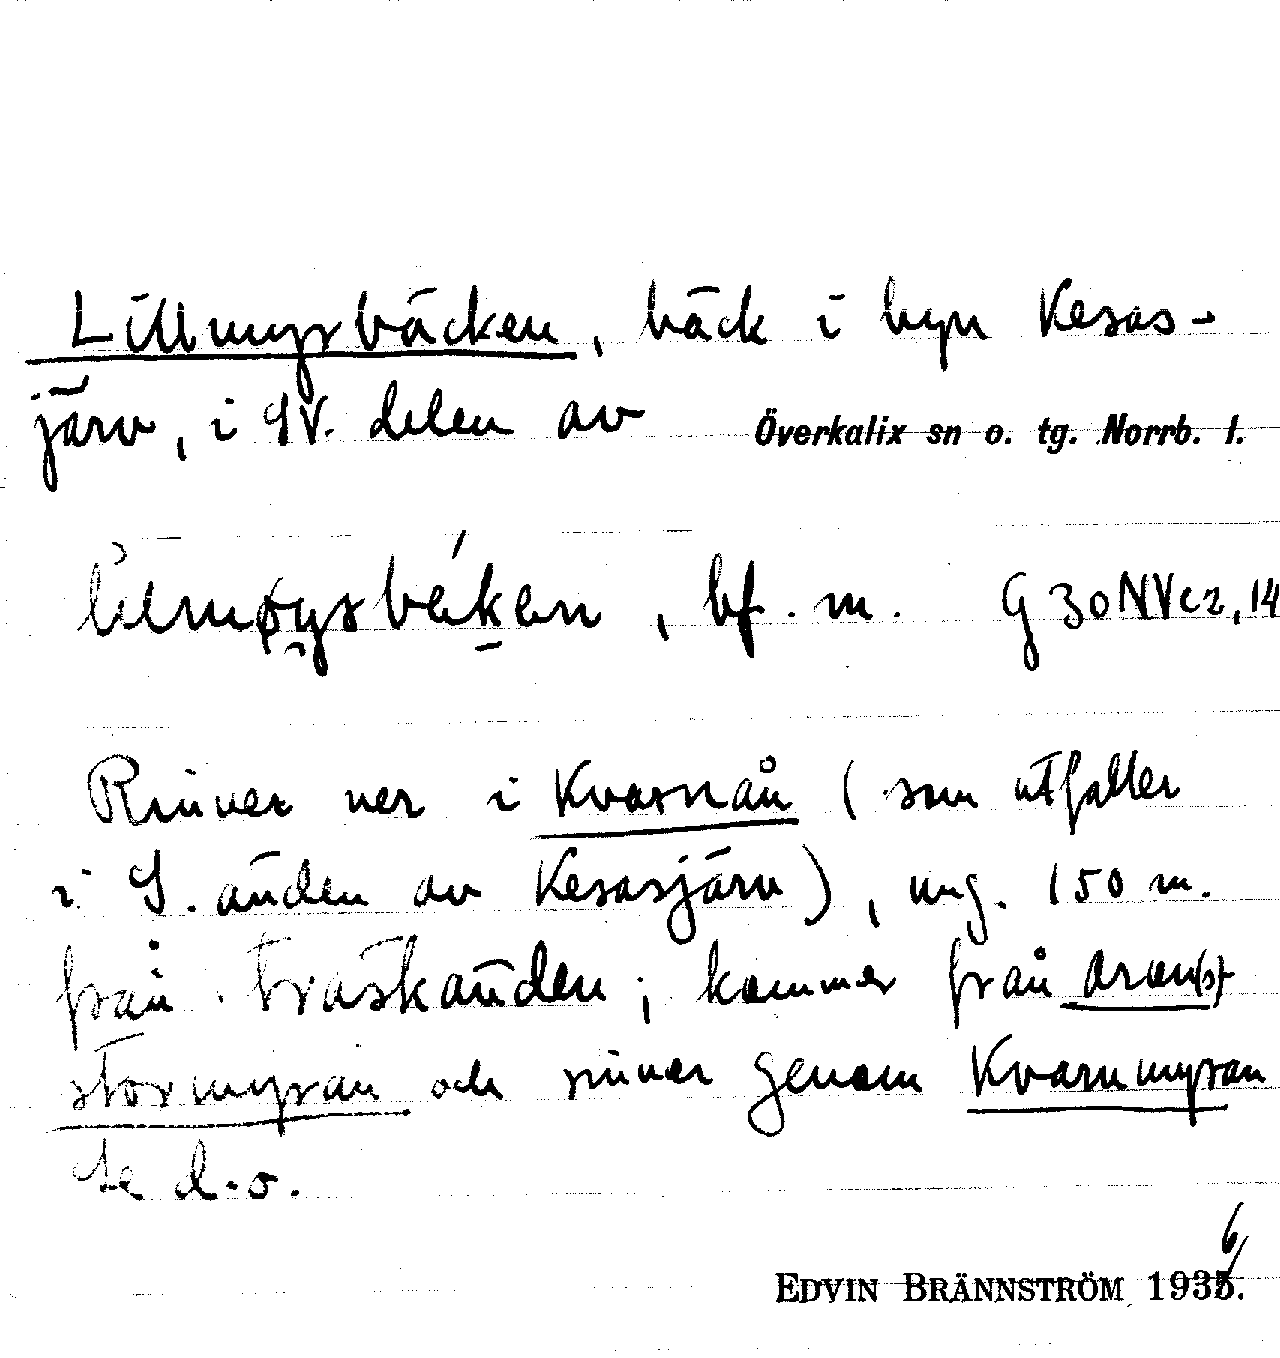 Lillmyrbäcken, bäck i byn Kesas-
järv, i SV. delen av Överkalix sn o. tg. Norrb. l.
bf. m. G 30 NV c 2, 14
Rinner ner i Kvarnån (som utfaller
i S. änden av Kesasjärv), ung. 150 m.
från träskänden; kommer från Aron(s)-
stormyran och rinner genom Kvarnmyran
Se d.o.
EDVIN BRÄNNSTRÖM 1936.